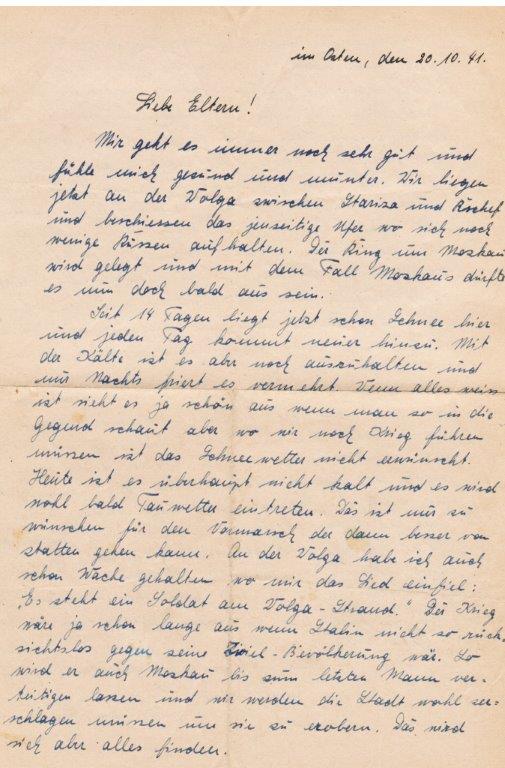 im Osten, den 20.10.41.
Liebe Eltern!
Mir geht es immer noch sehr gut und
fühle mich gesund und munter. Wir liegen
jetzt an der Volga zwischen Stariza und Rschef
und beschiessen das jenseitige Ufer wo sich noch
wenige Russen aufhalten. Der Ring um Moskau
wird gelegt und mit dem Fall Moskaus dürfte
es nun doch bald aus sein.
Seit 14 Tagen liegt jetzt schon Schnee hier
und jeden Tag kommt neuer hinzu. Mit
der Kälte ist es aber noch auszuhalten und
nur Nachts friert es vermehrt. Wenn alles weiss
ist sieht es ja schön aus wenn man so in die
Gegend schaut aber wo wir noch Krieg führen
müssen ist das Schneewetter nicht erwünscht.
Heute ist es überhaupt nicht kalt und es wird
wohl bald Tauwetter eintreten. Das ist nur zu
wünschen für den Vormarsch der dann besser von
statten gehen kann. An der Volga habe ich auch
schon Wache gehalten wo mir das Lied einfiel:
Es steht ein Soldat am Volga-Strand." Der Krieg
wäre ja schon lange aus wenn Stalin nicht so rück-
sichtslos gegen seine Ziviel-Bevölkerung wär. So
wird er auch Moskau bis zum letzten Mann ver-
teitigen lassen und wir werden die Stadt wohl zer=
schlagen müssen um sie zu erobern. Das wird
sich aber alles finden.